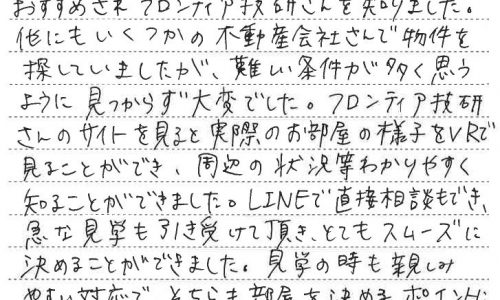 おすすめされ フロンティア技研さんを知りました。
他にもいくつかの不動産会社さんで物件を
探していましたが、難しい条件が多く思う
ように見つからず大変でした。フロンティア技研
さんのサイトを見ると実際のお部屋の様子をVRで
見ることができ、周辺の状況等わかりやすく
知ることができました。LINEで直接相談もでき、
急な見学も引き受けて頂き、とてもスムーズに
決めることができました。見学の時も親しみ
やすい対応で、そちらも部屋を決めるポイントに